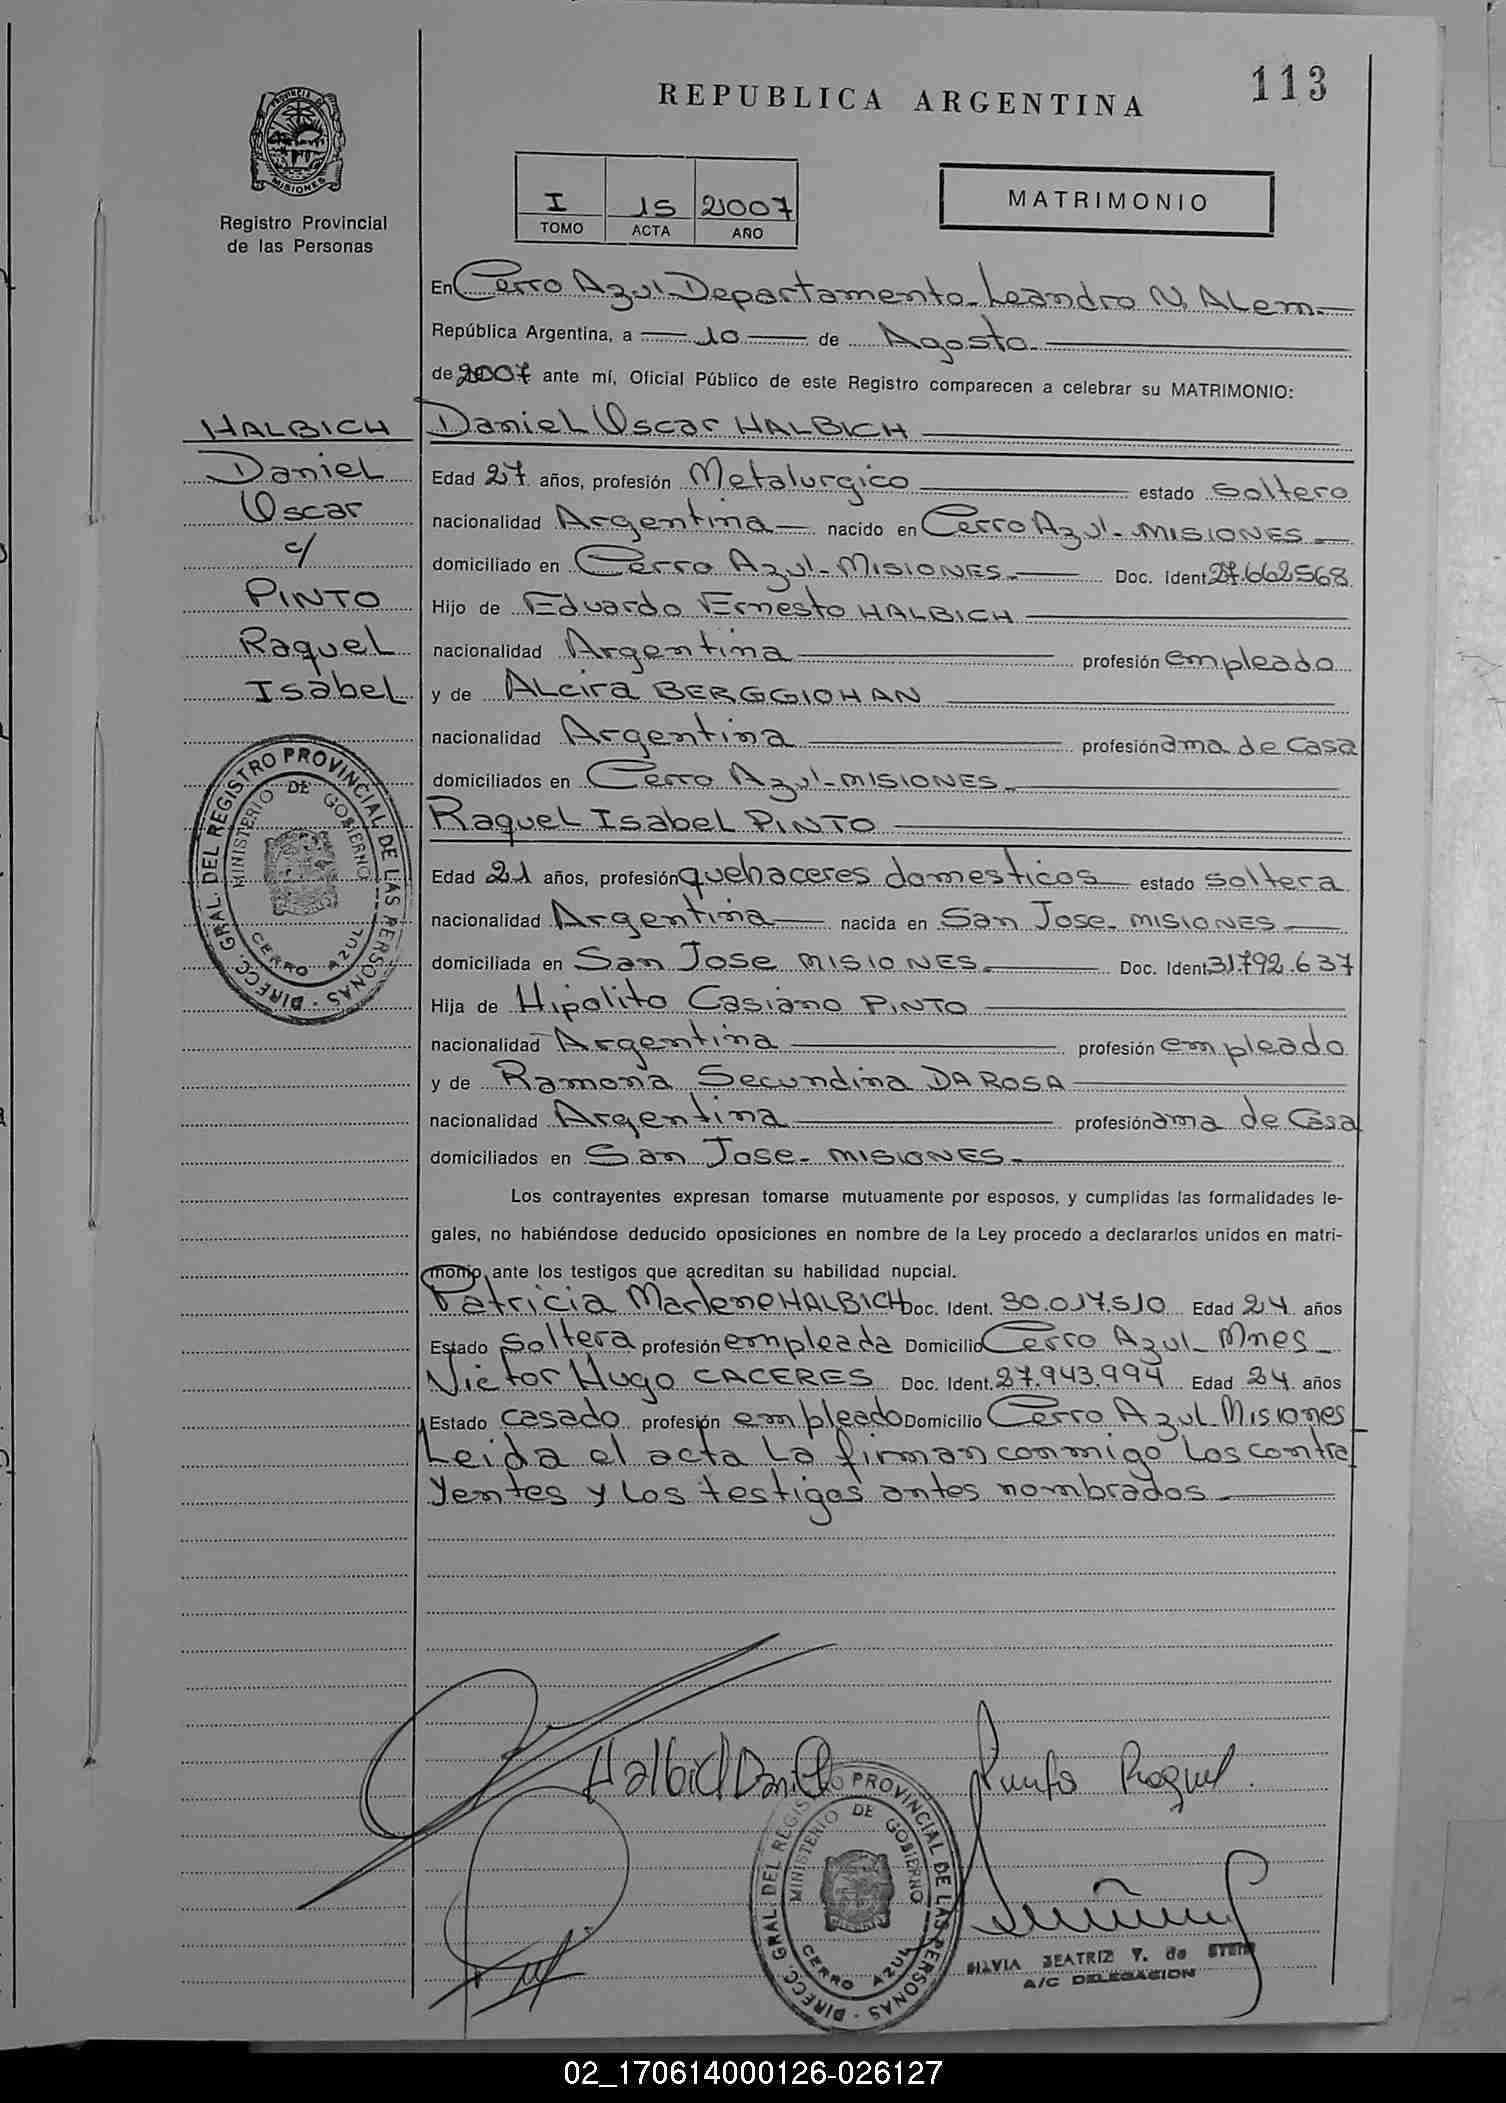 REPUBLICA ARGENTINA
113
PROVINCIA DE
MISIONES
Registro Provincial
de las Personas
I 15 2007
TOMO ACTA AÑO
MATRIMONIO
En Cerro Azul Departamento Leandro N. ALem.
República Argentina, a 10 de Agosto
de 2007 ante mí, Oficial Público de este Registro comparecen a celebrar su MATRIMONIO:
HALBICH
Daniel
Oscar
c/
PINTO
Raquel
Isabel
Daniel Oscar HALBICH
Edad 27 años, profesión Metalurgico estado soltero
nacionalidad Argentina nacido en Cerro Azul - MISIONES
domiciliado en Cerro Azul - MISIONES Doc. Ident. 27.662568
Hijo de Eduardo Ernesto HALBICH
nacionalidad Argentina profesión empleado
y de ALcira BERGGIOHAN
nacionalidad Argentina profesión ama de Casa
domiciliados en Cerro Azul - MISIONES
Raquel Isabel PINTO
Edad 21 años, profesión quehaceres domesticos estado soltera
nacionalidad Argentina nacida en San Jose - MISIONES
domiciliada en San Jose MISIONES Doc. Ident. 31.792.637
Hija de Hipolito Casiano PINTO
nacionalidad Argentina profesión empleado
y de Ramona Secundina DA ROSA
nacionalidad Argentina profesión ama de Casa
domiciliados en San Jose - MISIONES
Los contrayentes expresan tomarse mutuamente por esposos, y cumplidas las formalidades le-
gales, no habiéndose deducido oposiciones en nombre de la Ley procedo a declararlos unidos en matri-
monio, ante los testigos que acreditan su habilidad nupcial.
Patricia Marlene HALBICH Doc. Ident. 30.017.510 Edad 24 años
Estado soltera profesión empleada Domicilio Cerro Azul - Mnes
Victor Hugo CACERES Doc. Ident. 27.943.994 Edad 24 años
Estado casado profesión empleado Domicilio Cerro Azul Misiones
Leida el acta la firman conmigo los contra
yentes y los testigos antes nombrados
DIRECC. GRAL. DEL REGISTRO PROVINCIAL DE LAS PERSONAS
MINISTERIO DE GOBIERNO
CERRO AZUL
Halbich Daniel
Raquel
DIRECC. GRAL. DEL REGISTRO PROVINCIAL DE LAS PERSONAS
MINISTERIO DE GOBIERNO
CERRO AZUL
SILVIA BEATRIZ Y. de
A/C DELEGACION
02_170614000126-026127